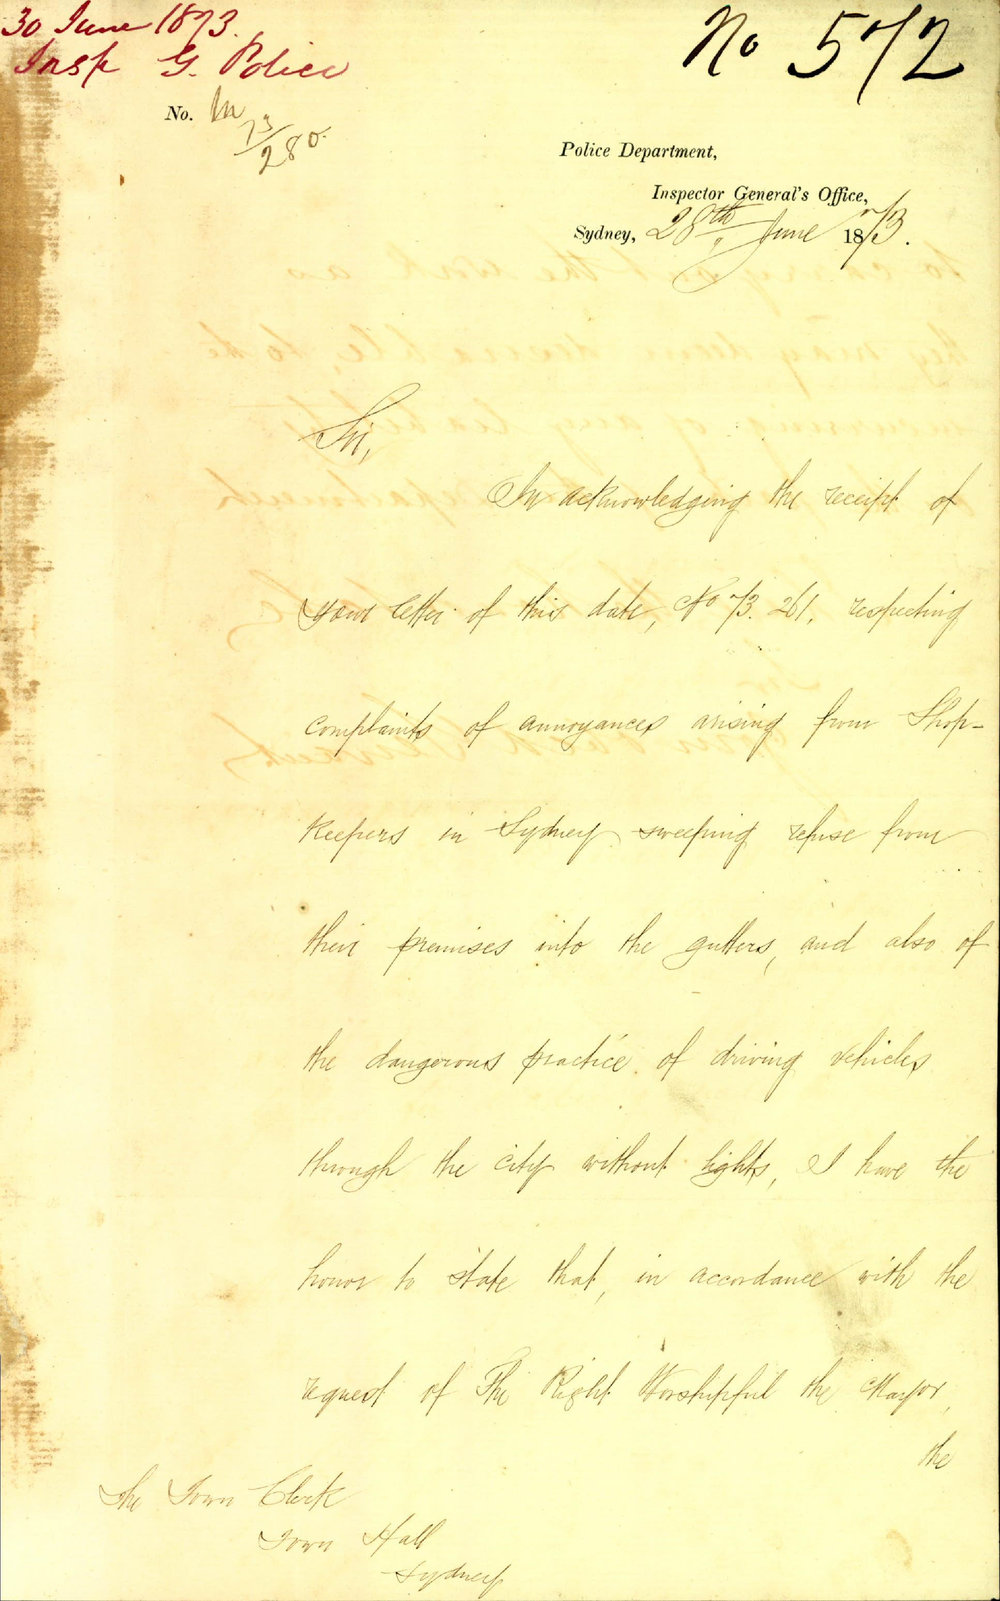 30 June 1873.
Insp G. Police
No 572
No. M
73/280.
Police Department,
Inspector General's Office,
Sydney, 28th June 1873.
Sir,
In acknowledging the receipt of
your letter of this date, No 73.261, respecting
complaints of annoyances arising from Shop-
keepers in Sydney sweeping refuse from
their premises into the gutters, and also of
the dangerous practice of driving vehicles
through the city without lights, I have the
honor to state that, in accordance with the
request of The Right Worshipful the Mayor,
the
The Town Clerk
Town Hall
Sydney